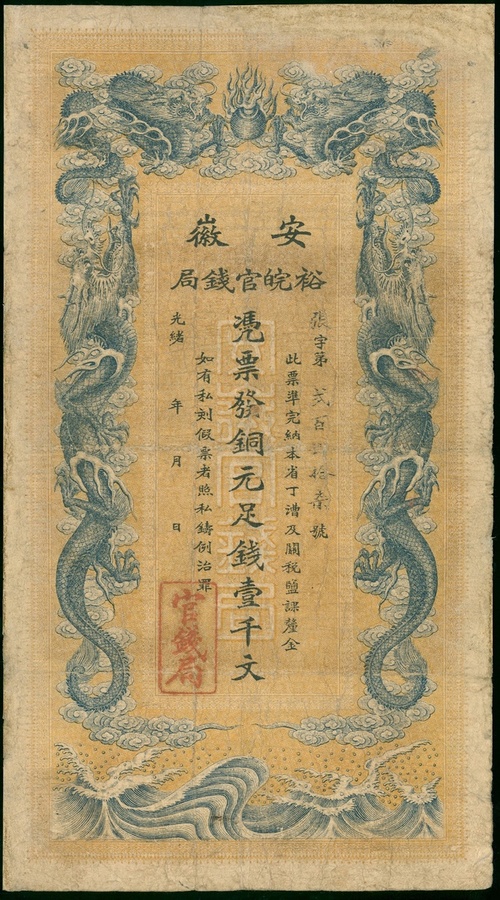 安徽
裕皖官錢局
張字第貳百肆拾柒號
此票準完納本省丁漕及關稅鹽課釐金
憑票發銅元足錢壹千文
如有私刻假票者照私鑄例治罪
光緒 年 月 日
官錢局